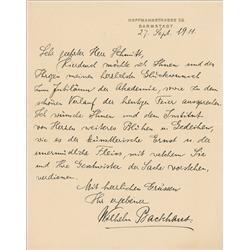 HOFFMANNSTRASSE 26.
DARMSTADT
27. Sept. 1911.
Sehr geehrter Herr Schmitt,
Hierdurch möchte ich Ihnen und den
Ihrigen meinen herzlichen Glückwunsch
zum Jubiläum der Akademie, sowie zu dem
schönen Verlauf der heutigen Feier aussprechen.
Ich wünsche Ihnen und dem Institut
von Herzen weiteres Blühen u. Gedeihen,
wie es der künstlerische Ernst u. der
unermüdliche Fleiss mit welchem Sie
und Ihre Geschwister der Sache vorstehen,
verdienen.
Mit herzlichen Grüssen
Ihr ergebener
Wilhelm Backhaus.